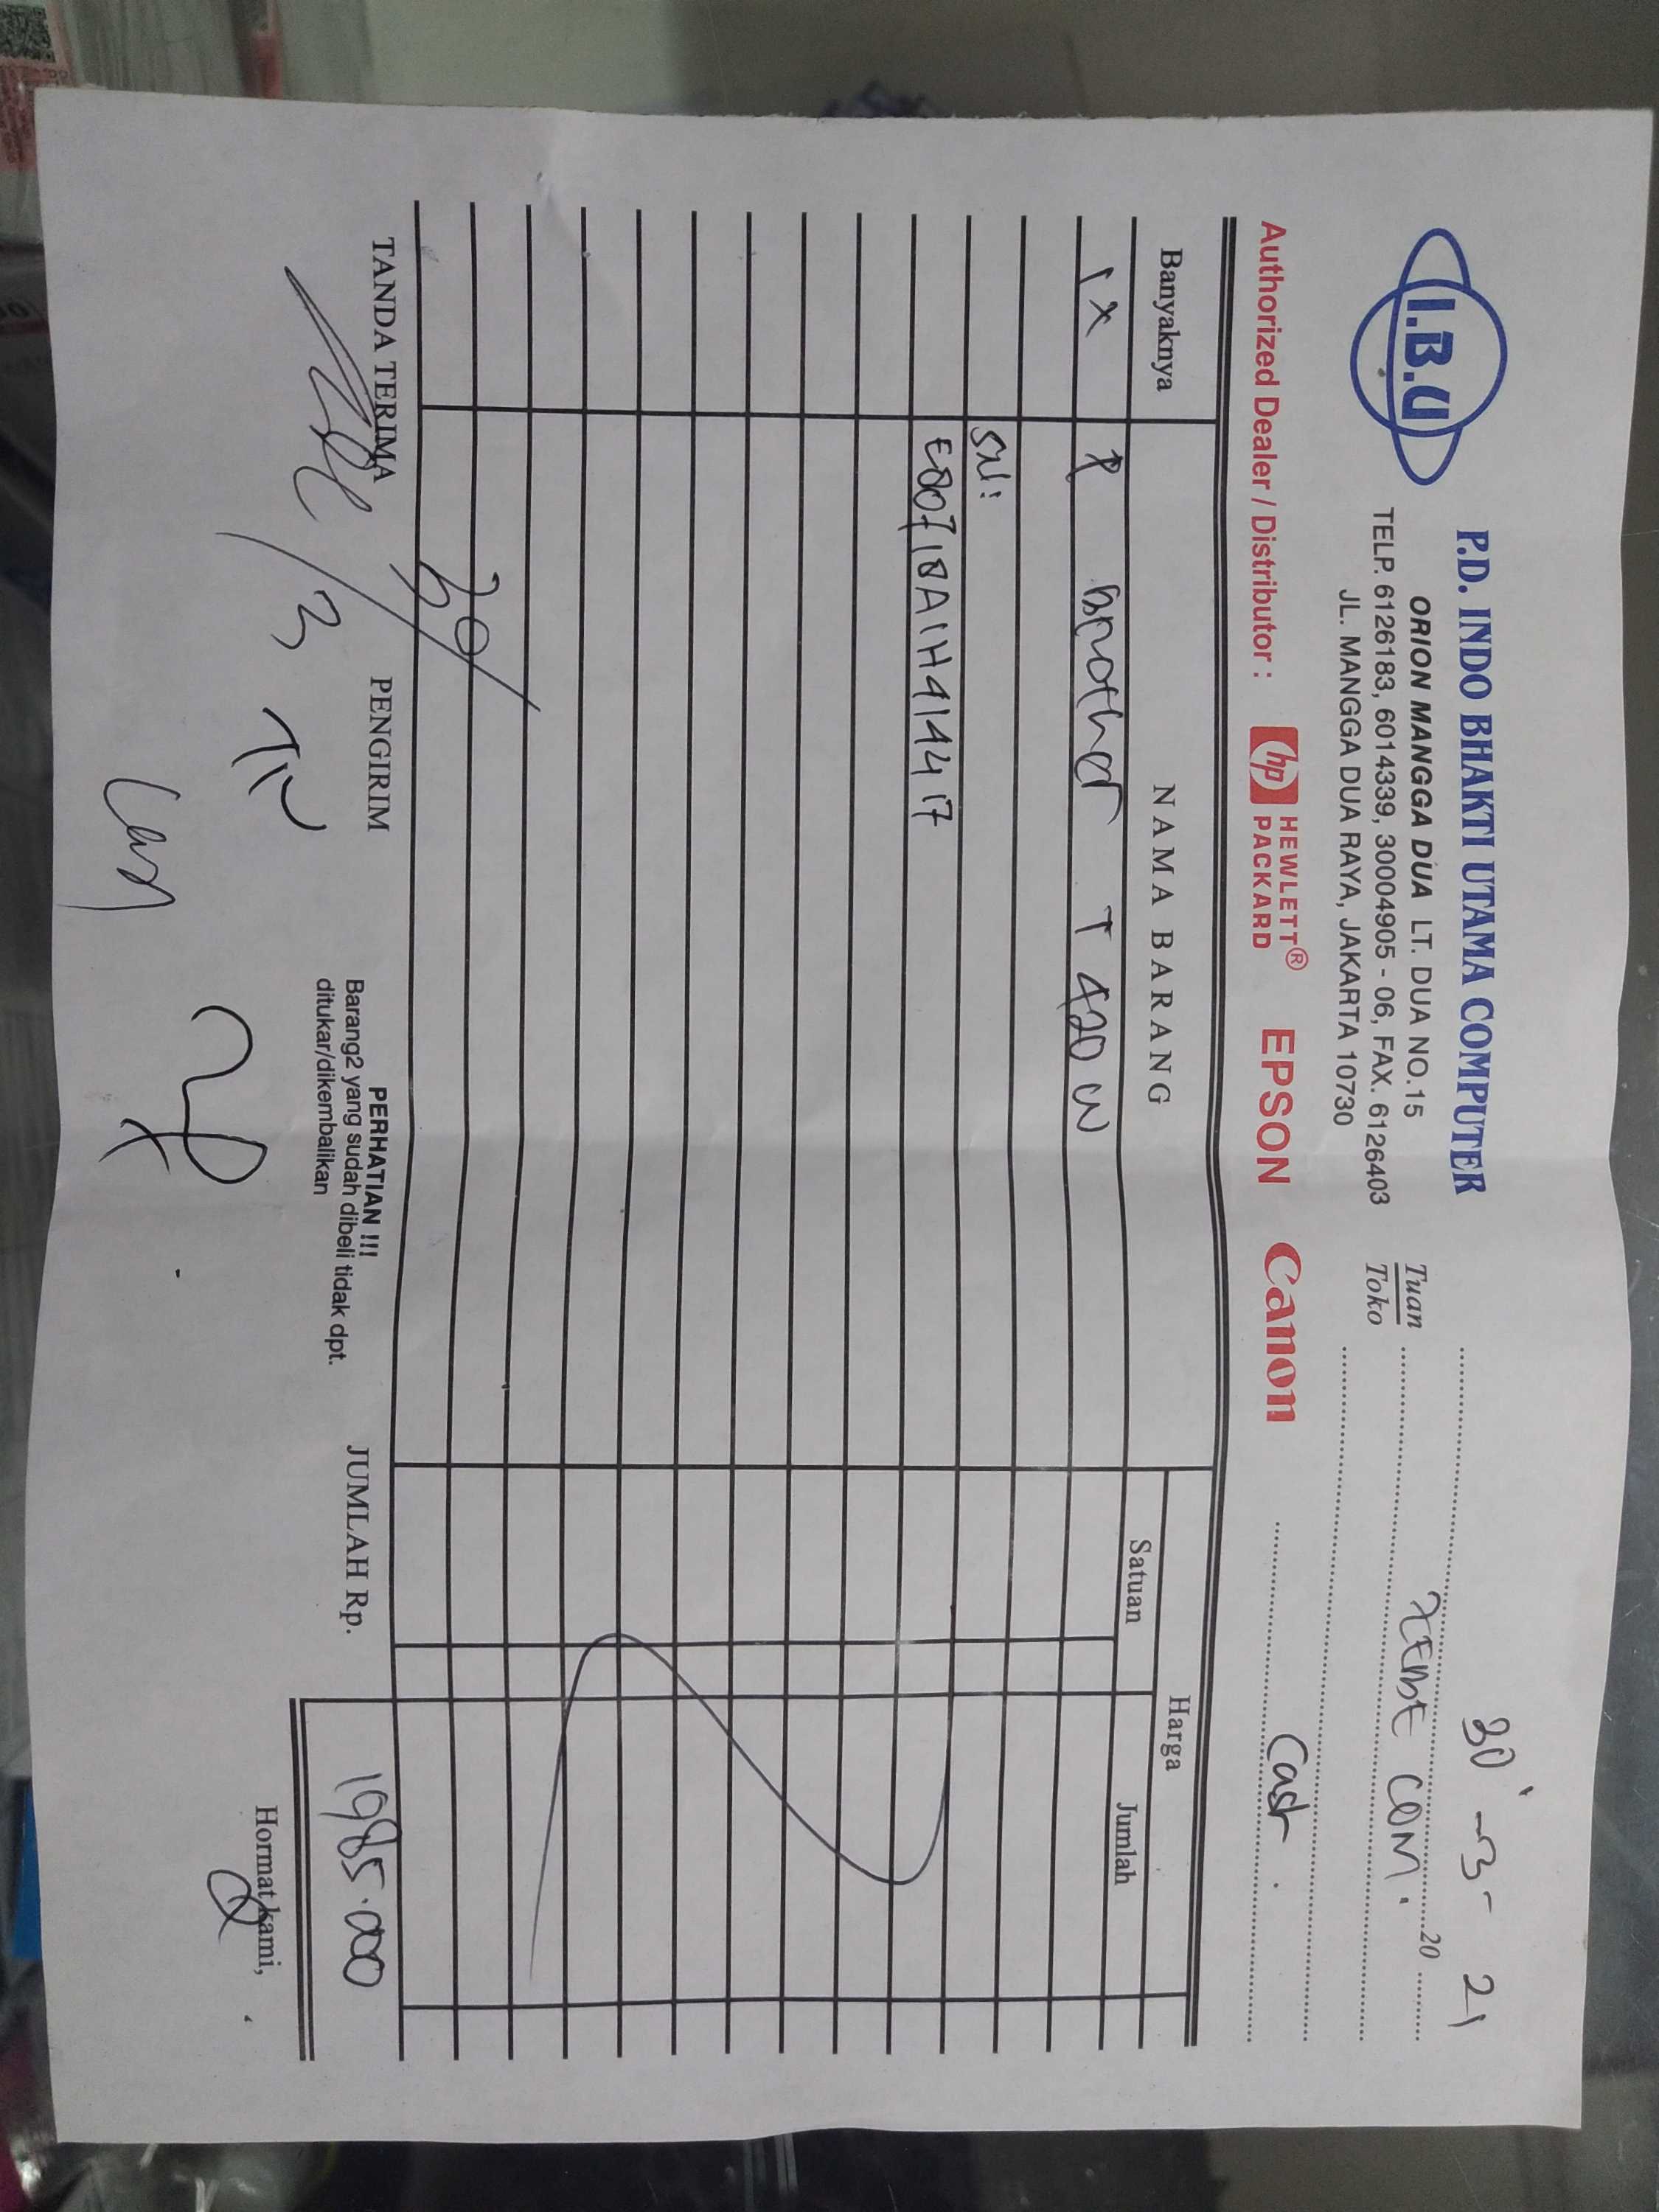 I.B.U
P.D. INDO BHAKTI UTAMA COMPUTER
ORION MANGGA DUA LT. DUA NO.15
TELP. 6126183, 6014339, 30004905 - 06, FAX. 6126403
JL. MANGGA DUA RAYA, JAKARTA 10730
30 - 3 - 21
20
Tuan
Toko
COM.
Cash.
Authorized Dealer / Distributor : hp HEWLETT® PACKARD EPSON Canon
Banyaknya NAMA BARANG Harga
Satuan Jumlah
1 X Brother T 420 W
SN:
E80718A1H414417
30/3
TANDA TERIMA PENGIRIM
PERHATIAN !!!
Barang2 yang sudah dibeli tidak dpt.
ditukar/dikembalikan
JUMLAH Rp. 1985.000
Hormat kami,